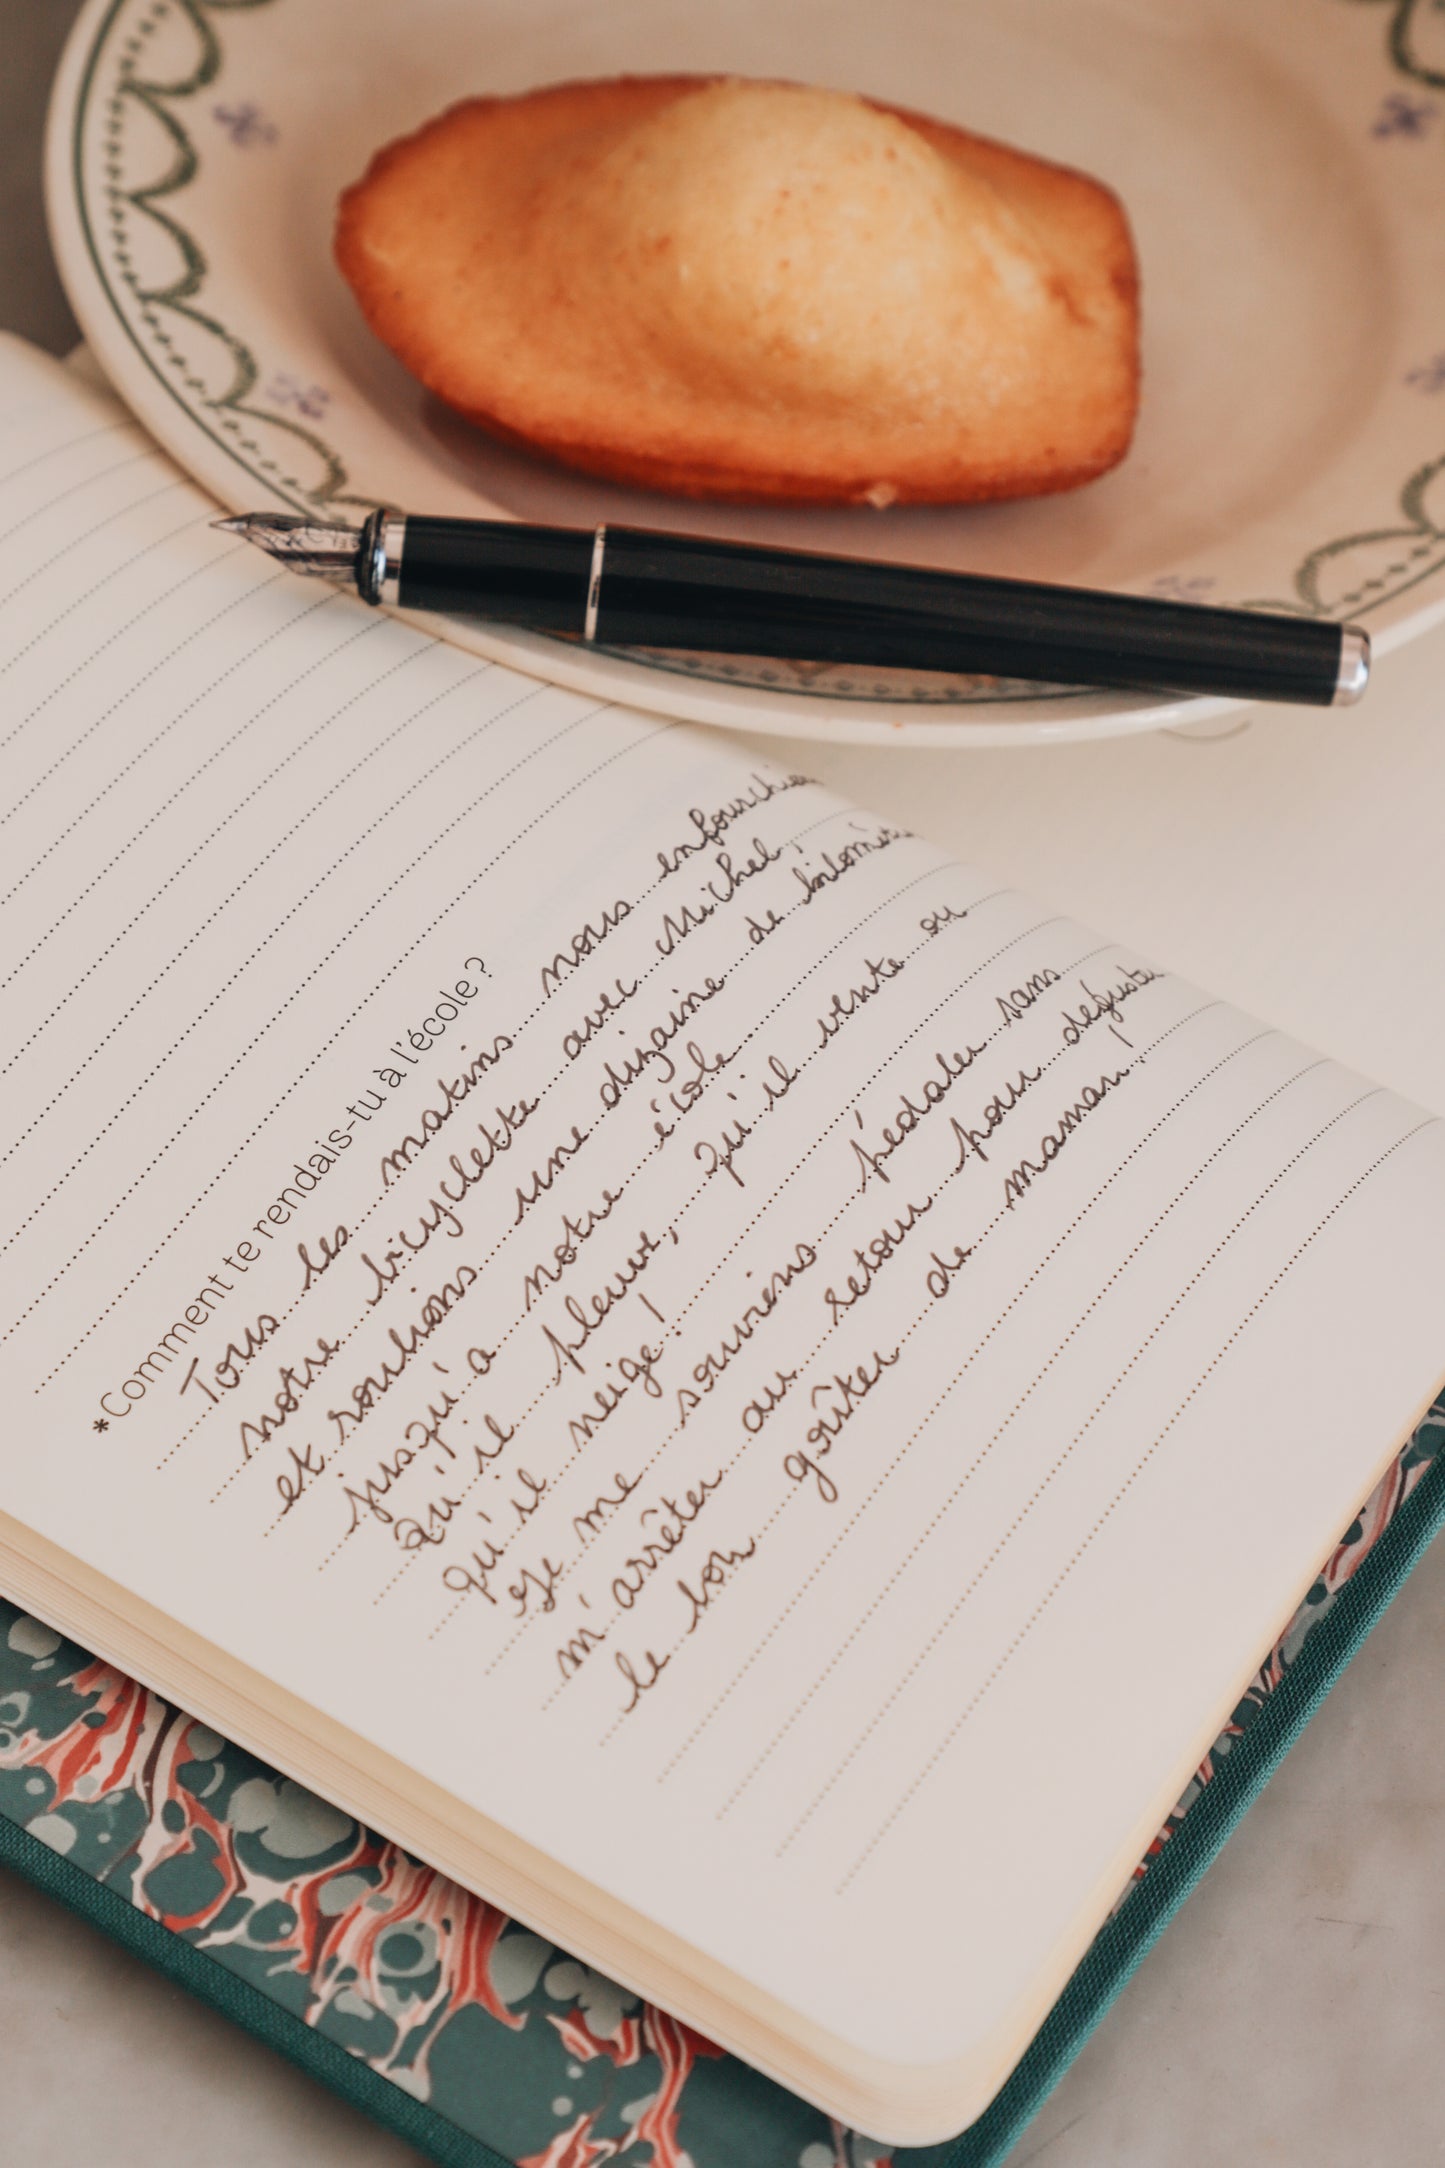 *Comment te rendais-tu à l'école ?
Tous les matins nous enfourchions
notre bicyclette avec Michel,
et roulions une dizaine de kilomètres
jusqu'a notre école.
Qu'il pleuve, qu'il vente ou
qu'il neige !
Je me souviens pédaler sans
m'arrêter au retour pour déguster
le bon goûter de maman !